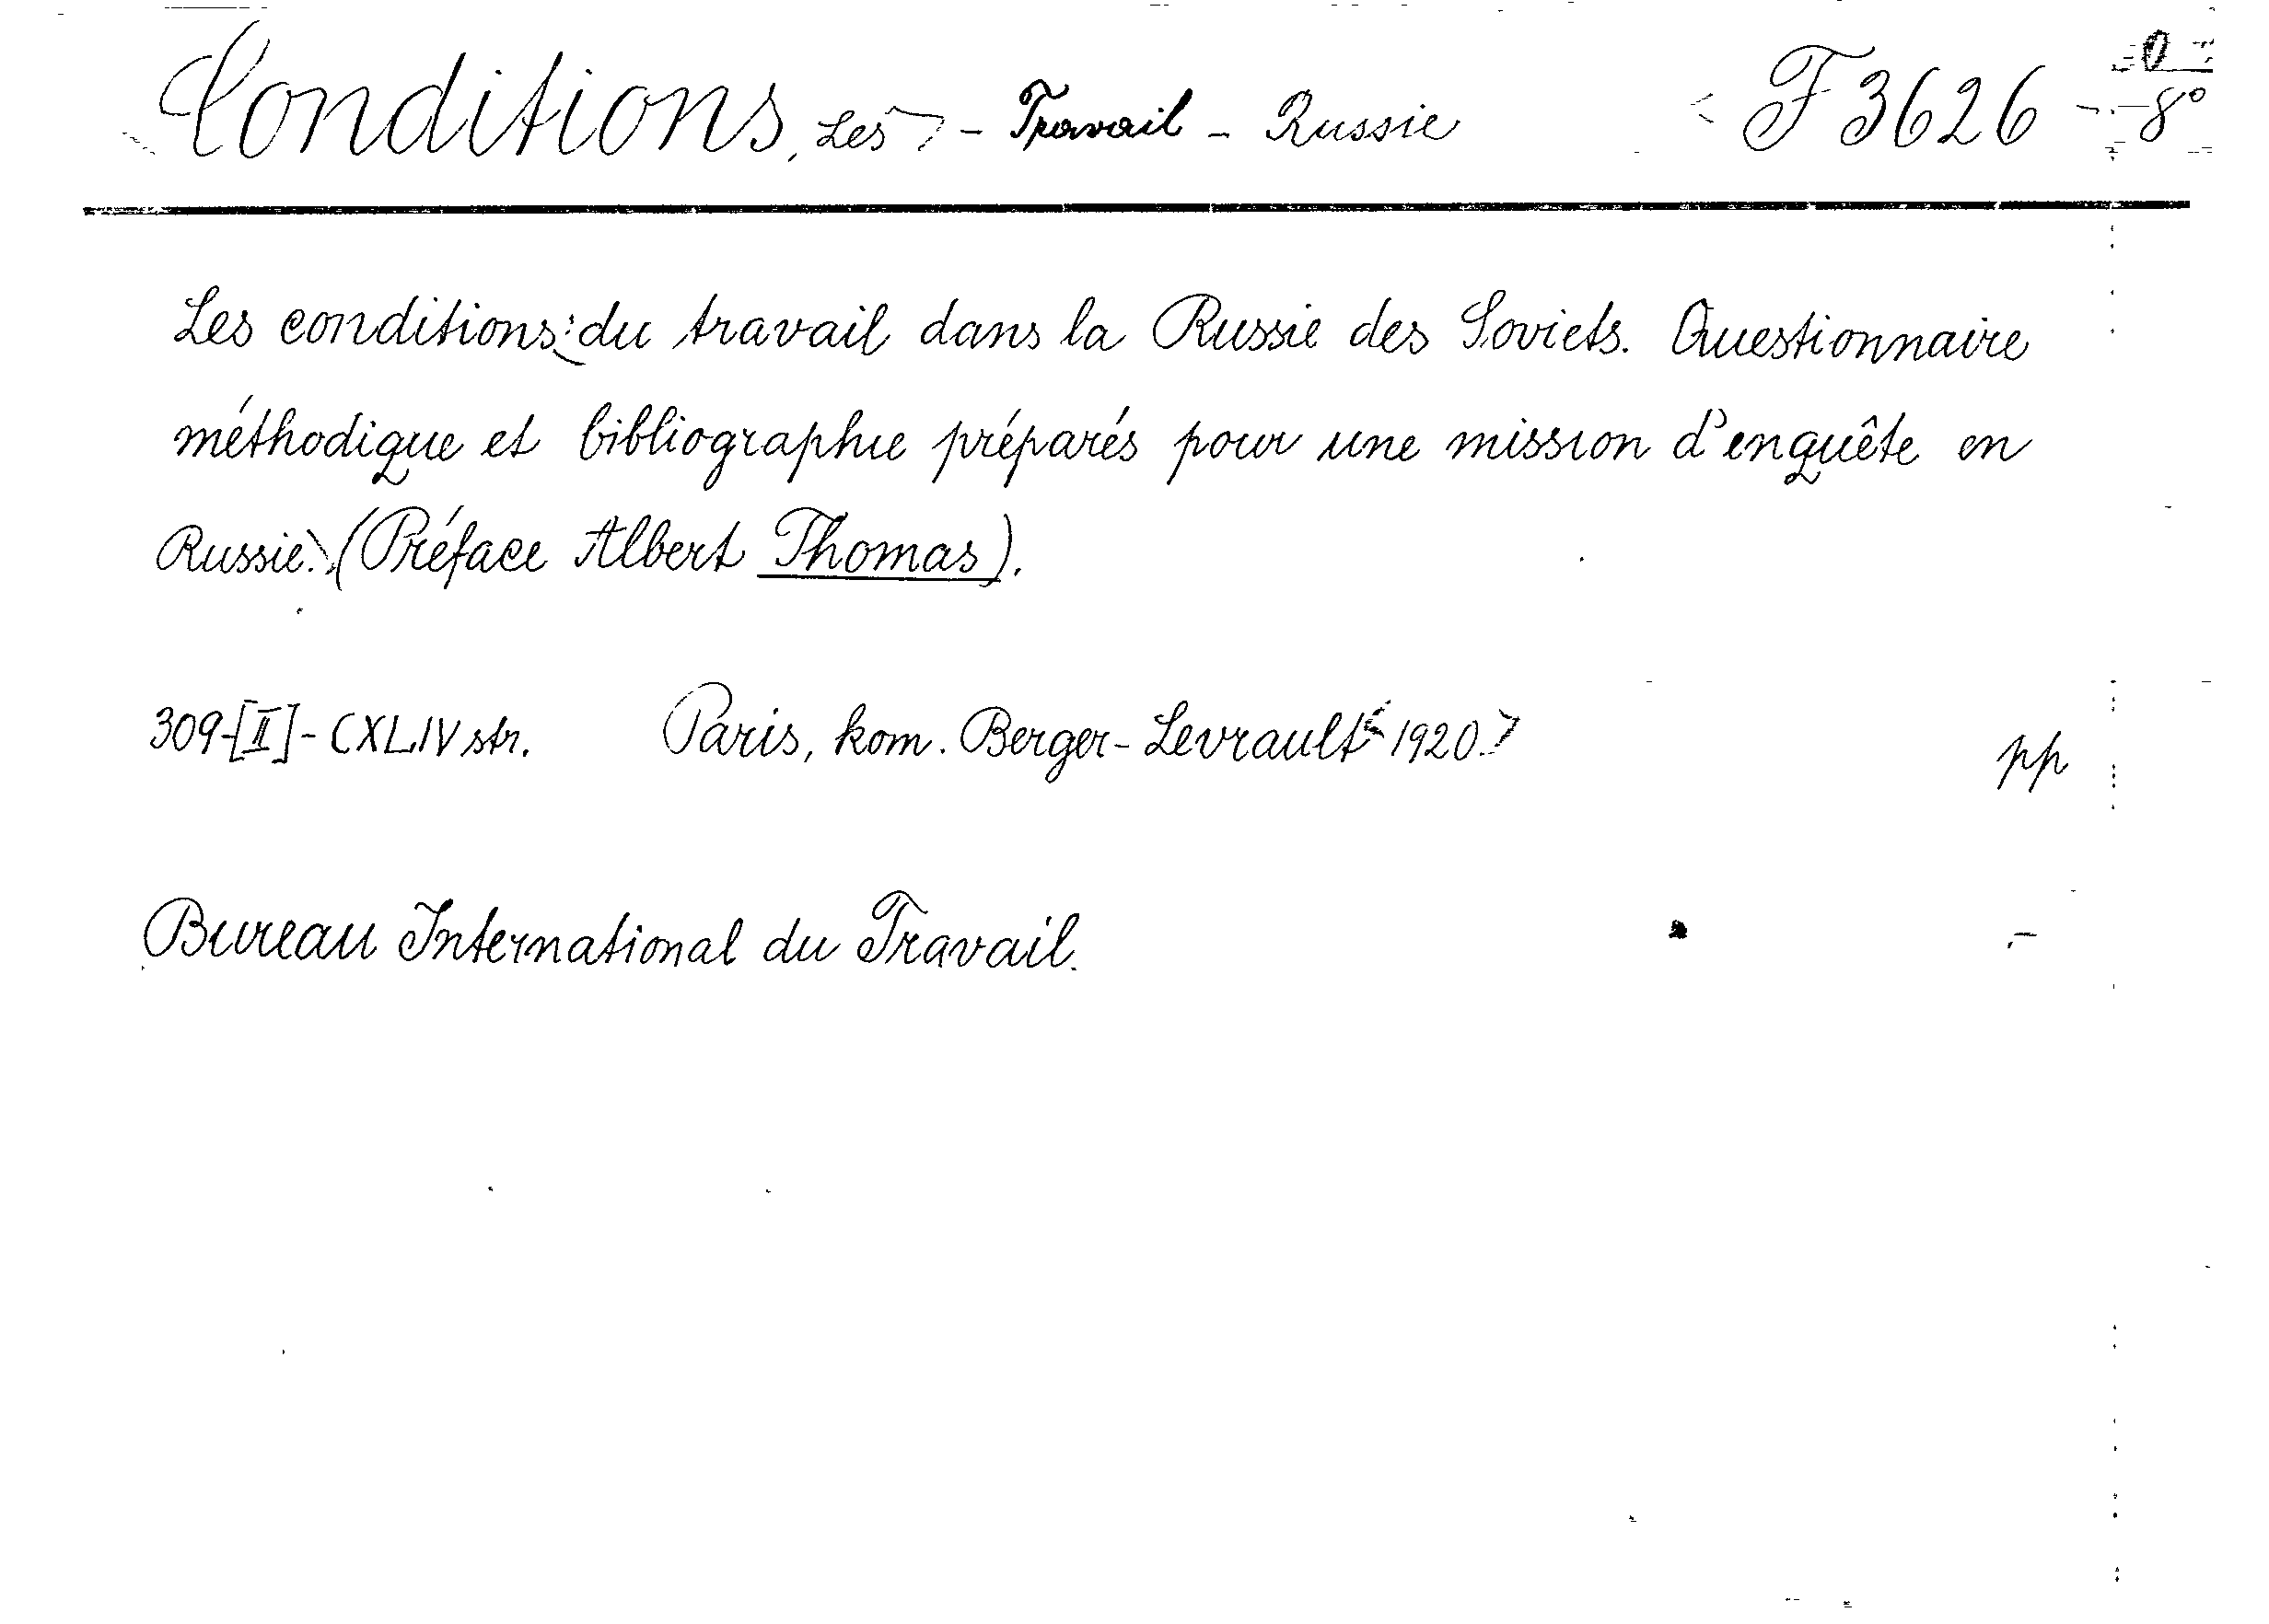 Conditions, Les - Travail - Russie F 3626 8°
Les conditions du travail dans la Russie des Soviets. Questionnaire
méthodique et bibliographie préparés pour une mission d'enquête en
Russie. (Préface Albert Thomas).
309-[II]-CXLIV str. Paris, kom. Berger-Levrault 1920.
pp
Bureau International du Travail.